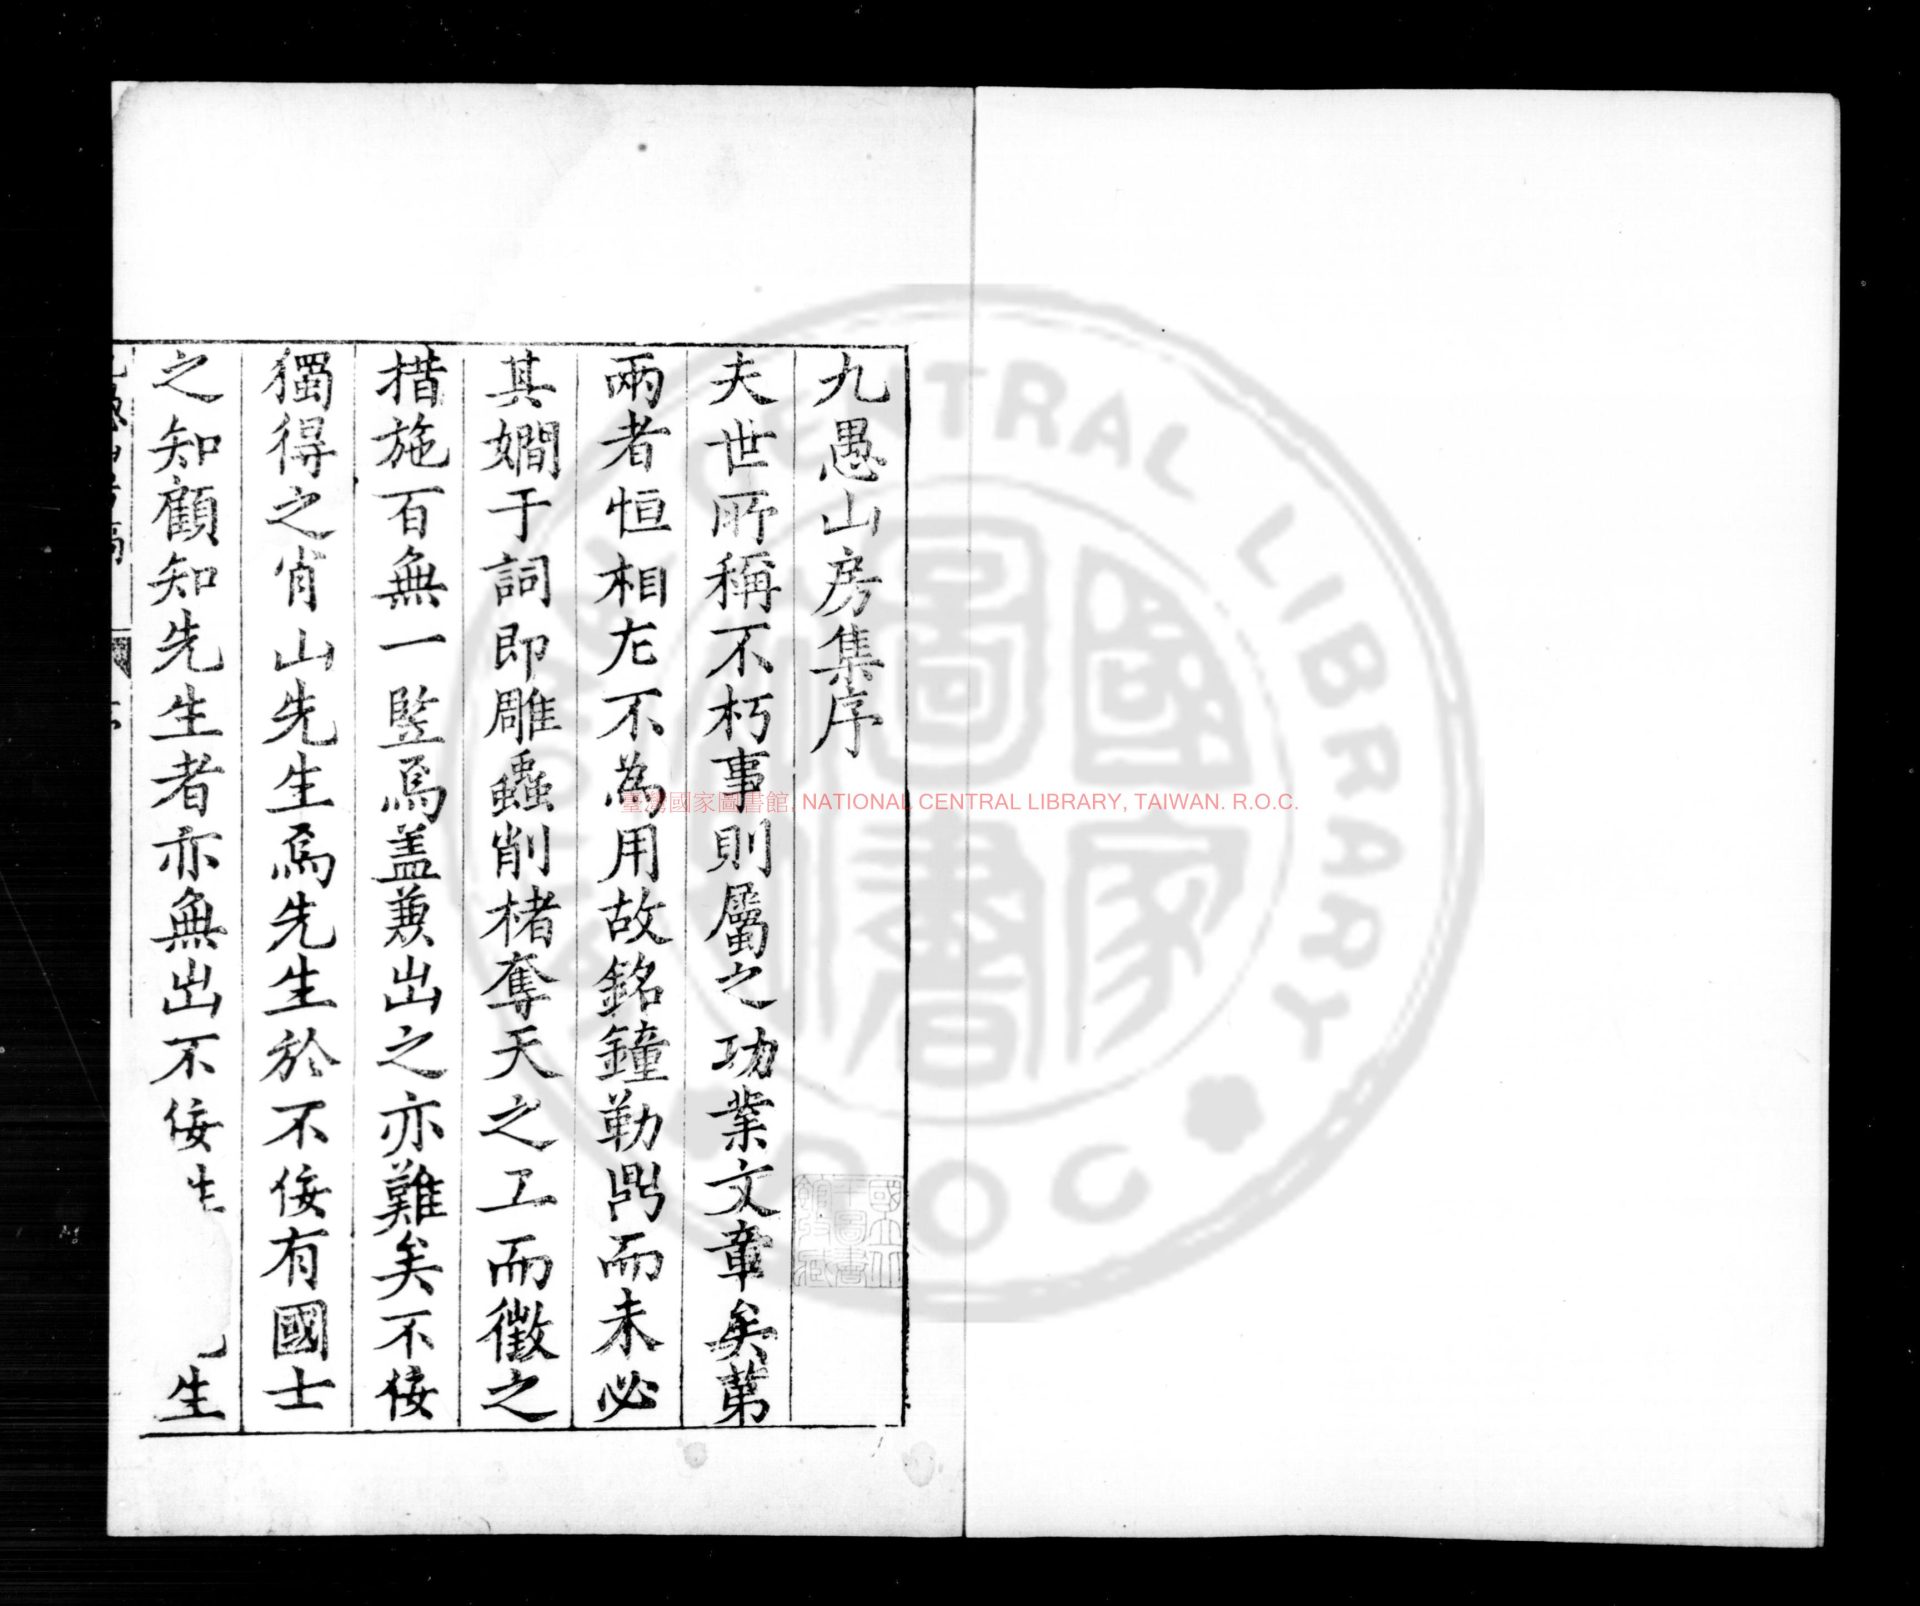 九愚山房集序
夫世所稱不朽事則屬之功業文章矣第
兩者恒相左不為用故銘鐘勒鼎而未必
其嫺于詞即雕蟲削楮奪天之工而徵之
措施百無一豎焉盖兼出之亦難矣不佞
獨得之肖山先生焉先生於不佞有國士
之知顧知先生者亦無出不佞生
生
臺灣國家圖書館, NATIONAL CENTRAL LIBRARY, TAIWAN. R.O.C.
國立中央圖書館收藏